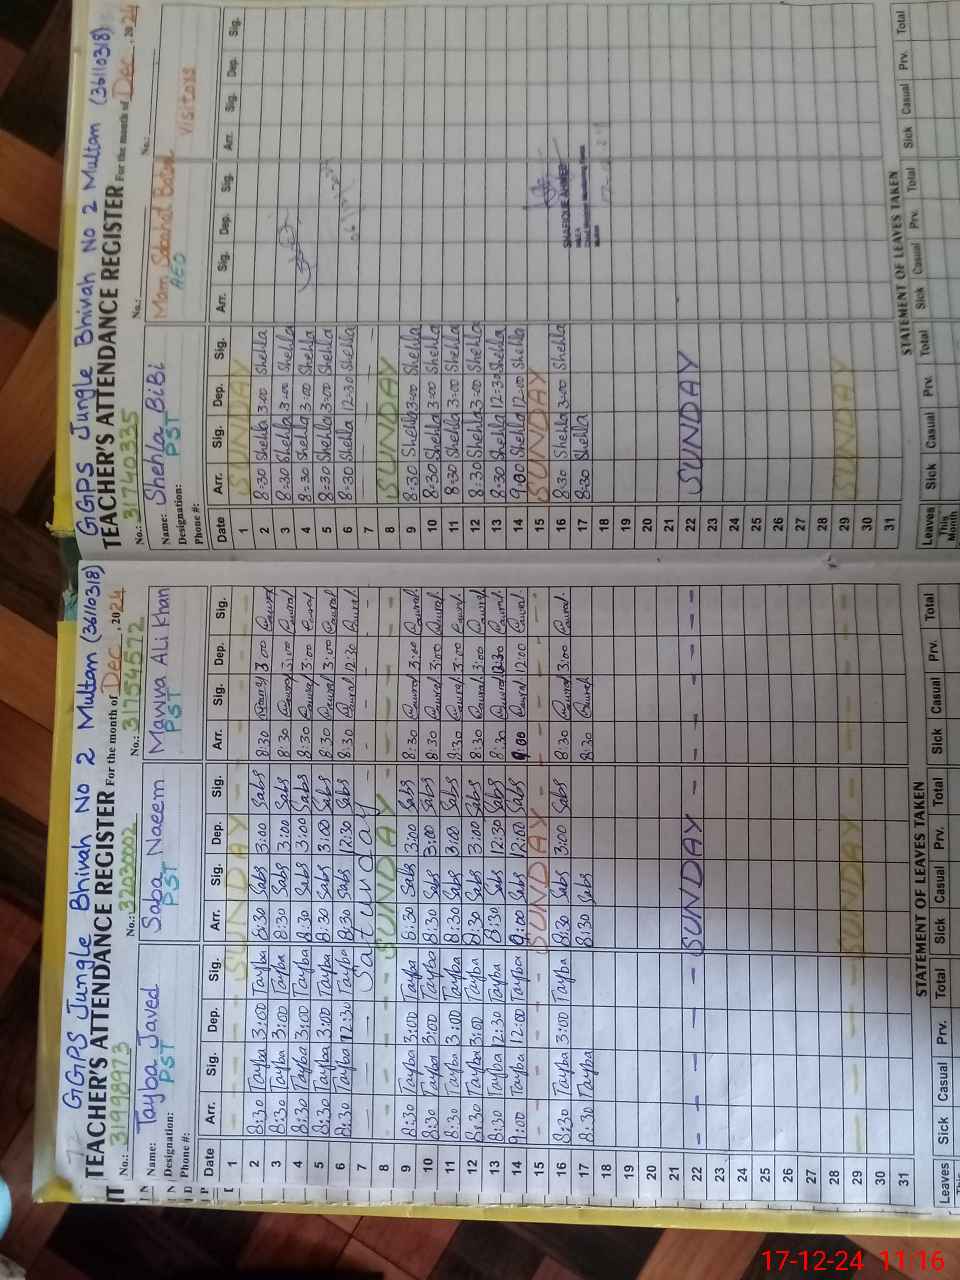 GGPS Jungle Bhivah NO 2 Multam (36110318)
TEACHER'S ATTENDANCE REGISTER For the month of Dec, 2024
No.: 31998973 No.: 32030002 No.: 31754572
Name: Tayba Javed Saba Naeem Mawra Ali Khan
Designation: PST PST PST
Phone #:
Date Arr. Sig. Dep. Sig. Arr. Sig. Dep. Sig. Arr. Sig. Dep. Sig.
1 SUNDAY
2 8:30 Tayba 3:00 Tayba 8:30 Sabs 3:00 Sabs 8:30 3:00
3 8:30 Tayba 3:00 Tayba 8:30 Sabs 3:00 Sabs 8:30 3:00
4 8:30 Tayba 3:00 Tayba 8:30 Sabs 3:00 Sabs 8:30 3:00
5 8:30 Tayba 3:00 Tayba 8:30 Sabs 3:00 Sabs 8:30 3:00
6 8:30 Tayba 12:30 Tayba 8:30 Sabs 12:30 Sabs 8:30 12:30
7 Saturday
8 SUNDAY
9 8:30 Tayba 3:00 Tayba 8:30 Sabs 3:00 Sabs 8:30 3:00
10 8:30 Tayba 3:00 Tayba 8:30 Sabs 3:00 Sabs 8:30 3:00
11 8:30 Tayba 3:00 Tayba 8:30 Sabs 3:00 Sabs 8:30 3:00
12 8:30 Tayba 3:00 Tayba 8:30 Sabs 3:00 Sabs 8:30 3:00
13 8:30 Tayba 12:30 Tayba 8:30 Sabs 12:30 Sabs 8:30 12:30
14 9:00 Tayba 12:00 Tayba 9:00 Sabs 12:00 Sabs 9:00 12:00
15 SUNDAY
16 8:30 Tayba 3:00 Tayba 8:30 Sabs 3:00 Sabs 8:30 3:00
17 8:30 Tayba 8:30 Sabs 8:30
18
19
20
21
22 SUNDAY
23
24
25
26
27
28
29 SUNDAY
30
31
STATEMENT OF LEAVES TAKEN
Leaves Sick Casual Prv. Total Sick Casual Prv. Total Sick Casual Prv. Total
GGPS Jungle Bhivah NO 2 Multam (36110318)
TEACHER'S ATTENDANCE REGISTER For the month of Dec, 2024
No.: 31740335 No.: No.:
Name: Shehla BiBi Mam Sabahat Batool visitors
Designation: PST AEO
Phone #:
Date Arr. Sig. Dep. Sig. Arr. Sig. Dep. Sig. Arr. Sig. Dep. Sig.
1 SUNDAY
2 8:30 Shehla 3:00 Shehla
3 8:30 Shehla 3:00 Shehla
4 8:30 Shehla 3:00 Shehla
5 8:30 Shehla 3:00 Shehla
6 8:30 Shehla 12:30 Shehla
7
8 SUNDAY
9 8:30 Shehla 3:00 Shehla
10 8:30 Shehla 3:00 Shehla
11 8:30 Shehla 3:00 Shehla
12 8:30 Shehla 3:00 Shehla
13 8:30 Shehla 12:30 Shehla
14 9:00 Shehla 12:00 Shehla
15 SUNDAY
16 8:30 Shehla 3:00 Shehla
17 8:30 Shehla
18
19
20
21
22 SUNDAY
23
24
25
26
27
28
29 SUNDAY
30
31
STATEMENT OF LEAVES TAKEN
Leaves Sick Casual Prv. Total Sick Casual Prv. Total Sick Casual Prv. Total
This Month
17-12-24 11:16